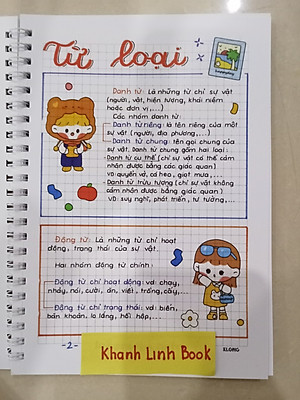 Từ loại
Danh từ: Là những từ chỉ sự vật
(người, vật, hiện tượng, khái niệm
hoặc đơn vị,...)
Các nhóm danh từ:
- Danh từ riêng: là tên riêng của một
sự vật (người, địa phương,...)
- Danh từ chung: tên gọi chung của
sự vật. Danh từ chung gồm hai loại:
- Danh từ cụ thể (chỉ sự vật có thể cảm
nhận được bằng các giác quan)
VD: quyển vở, cá heo, giọt mưa,...
- Danh từ trừu tượng (chỉ sự vật không
cảm nhận được bằng giác quan)
VD: suy nghĩ, phát triển, tư tưởng,...
Động từ: Là những từ chỉ hoạt
động, trạng thái của sự vật.
Hai nhóm động từ chính:
- Động từ chỉ hoạt động: vd: chạy,
nhảy, nói, cười, ăn, viết, trồng cây,...
- Động từ chỉ trạng thái: vd: biến,
băn khoăn, lo lắng, hồi hộp,...
-2-
KLONG
Khanh Linh Book